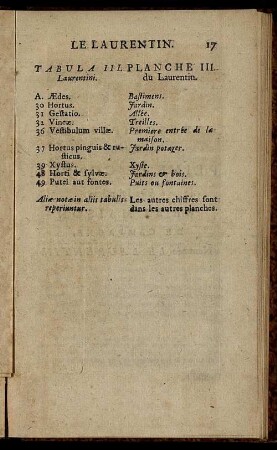 LE LAURENTIN. 17
TABULA III. PLANCHE III.
Laurentini. du Laurentin.
A. Ædes. Bastimens.
30 Hortus. Jardin.
31 Gestatio. Allée.
32 Vineæ. Treilles.
36 Vestibulum villæ. Premiere entrée de la
maison.
37 Hortus pinguis & ru- Jardin potager.
sticus.
39 Xystus. Xyste.
48 Horti & sylvæ. Jardins & bois.
49 Putei aut fontes. Puits ou fontaines.
Aliæ notæ in aliis tabulis Les autres chiffres sont
reperiuntur. dans les autres planches.